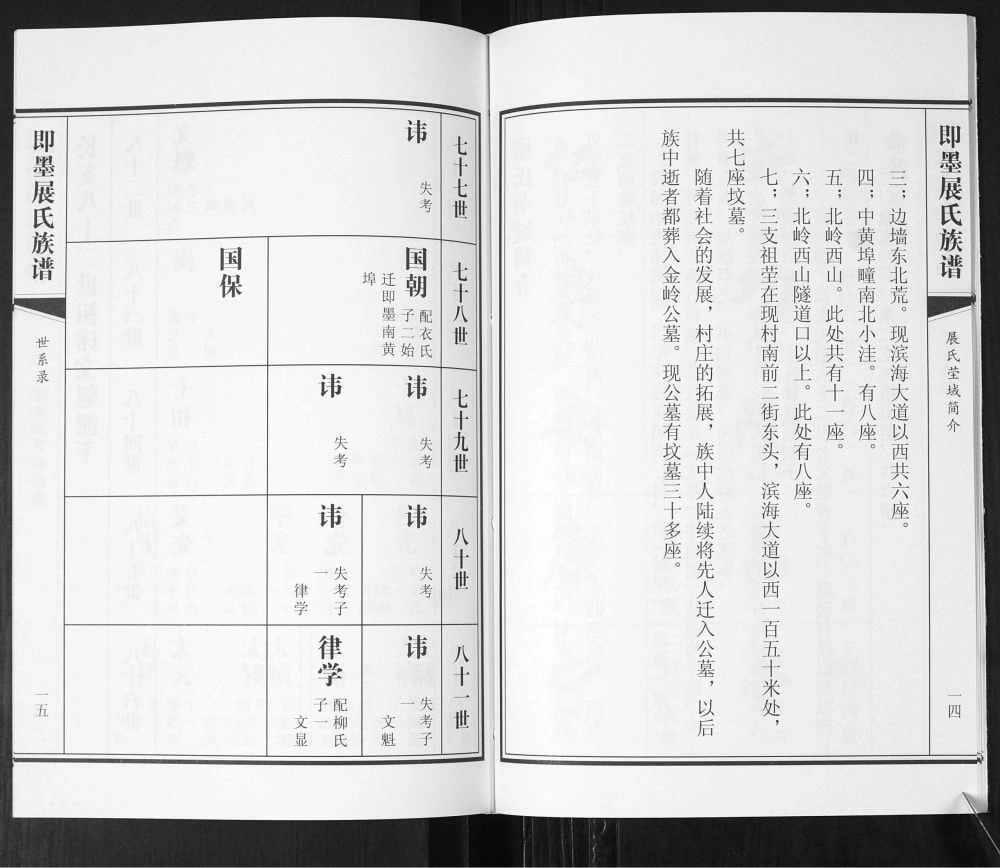 即墨展氏族谱
展氏茔域简介
一四
三；边墙东北荒。现滨海大道以西共六座。
四：中黄埠疃南北小洼。有八座。
五：北岭西山。此处共有十一座。
六：北岭西山隧道口以上。此处有八座。
七：三支祖茔在现村南前二街东头，滨海大道以西一百五十米处，
共七座坟墓。
随着社会的发展，村庄的拓展，族中人陆续将先人迁入公墓，以后
族中逝者都葬入金岭公墓。现公墓有坟墓三十多座。
七十七世
讳
失考
七十八世
国朝
配衣氏
子二始
迁即墨南黄
埠
国保
七十九世
讳
失考
讳
失考
八十世
讳
失考
讳
失考子
一
律学
八十一世
讳
失考子
一
文魁
律学
配柳氏
子一
文显
即墨展氏族谱
世系录
一五